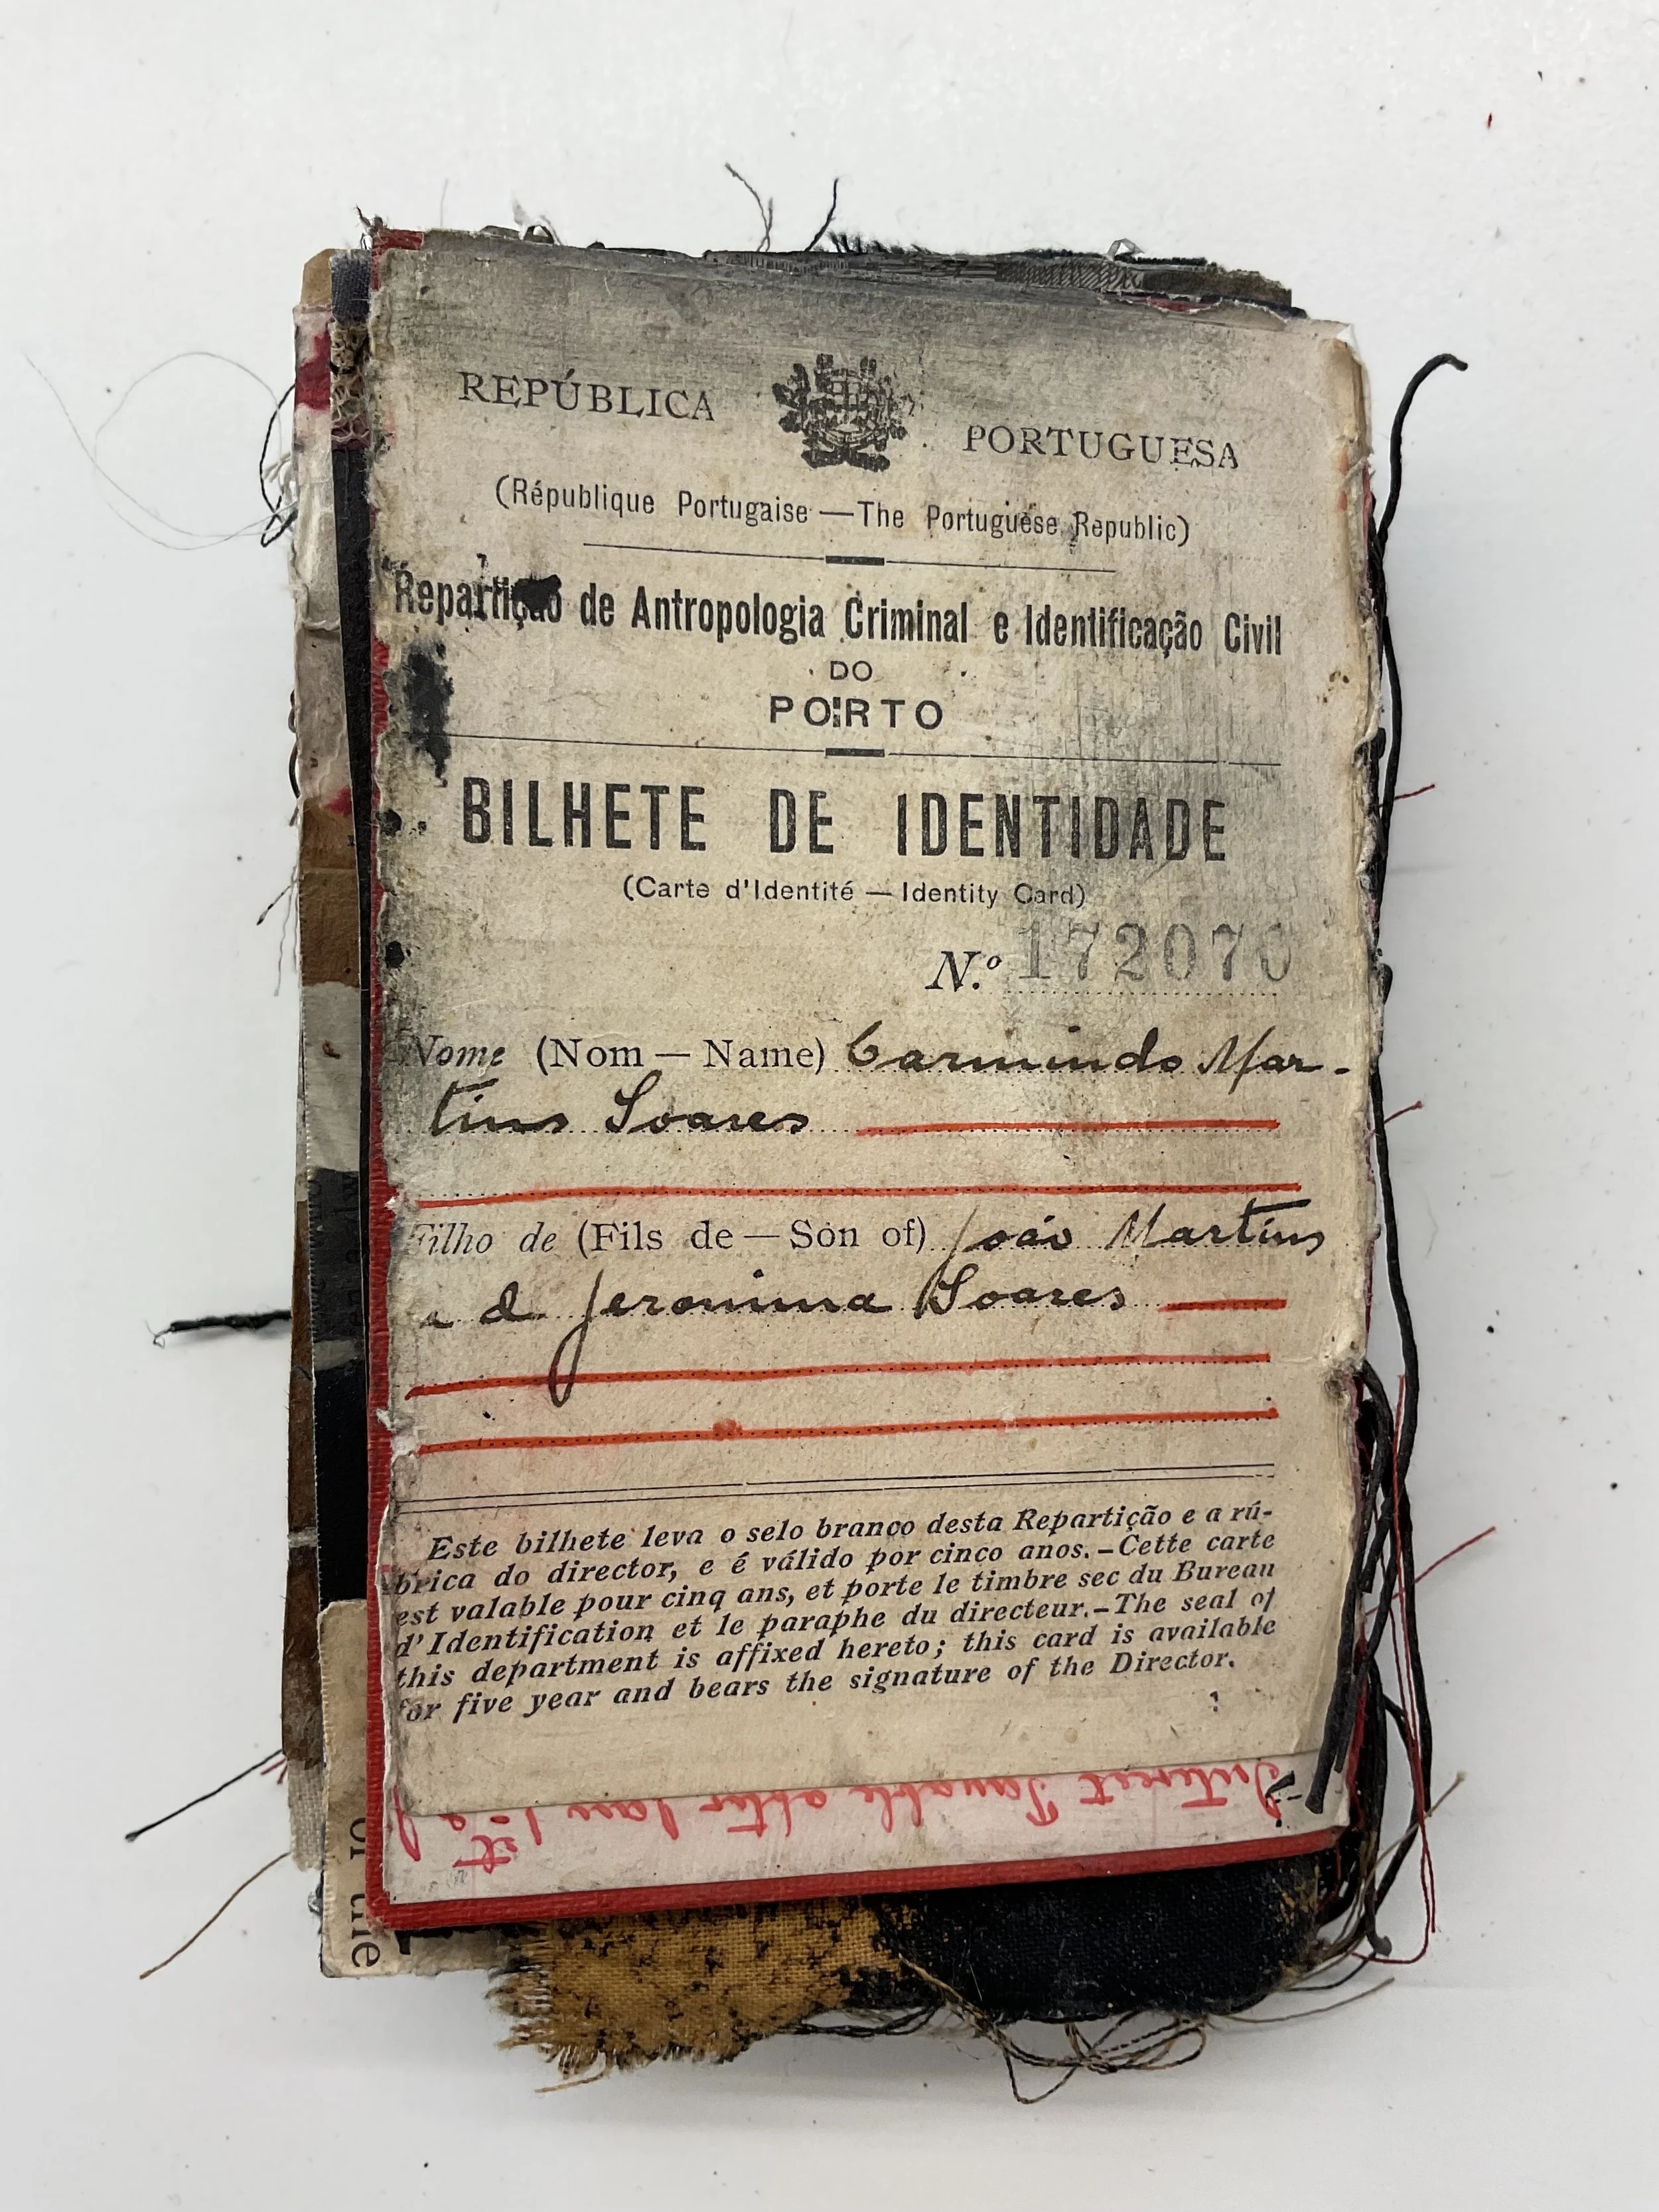 REPÚBLICA PORTUGUESA
(République Portugaise — The Portuguese Republic)
Repartição de Antropologia Criminal e Identificação Civil
DO
PORTO
BILHETE DE IDENTIDADE
(Carte d'Identité — Identity Card)
N.º 172070
Nome (Nom — Name) Carmindo Mar-
tins Soares
Filho de (Fils de — Son of) João Martins
e d Jeronima Soares
Este bilhete leva o selo branco desta Repartição e a rú-
brica do director, e é válido por cinco anos.—Cette carte
est valable pour cinq ans, et porte le timbre sec du Bureau
d'Identification et le paraphe du directeur.—The seal of
this department is affixed hereto; this card is available
for five year and bears the signature of the Director.
Interest Payable after Jany 1st
or the